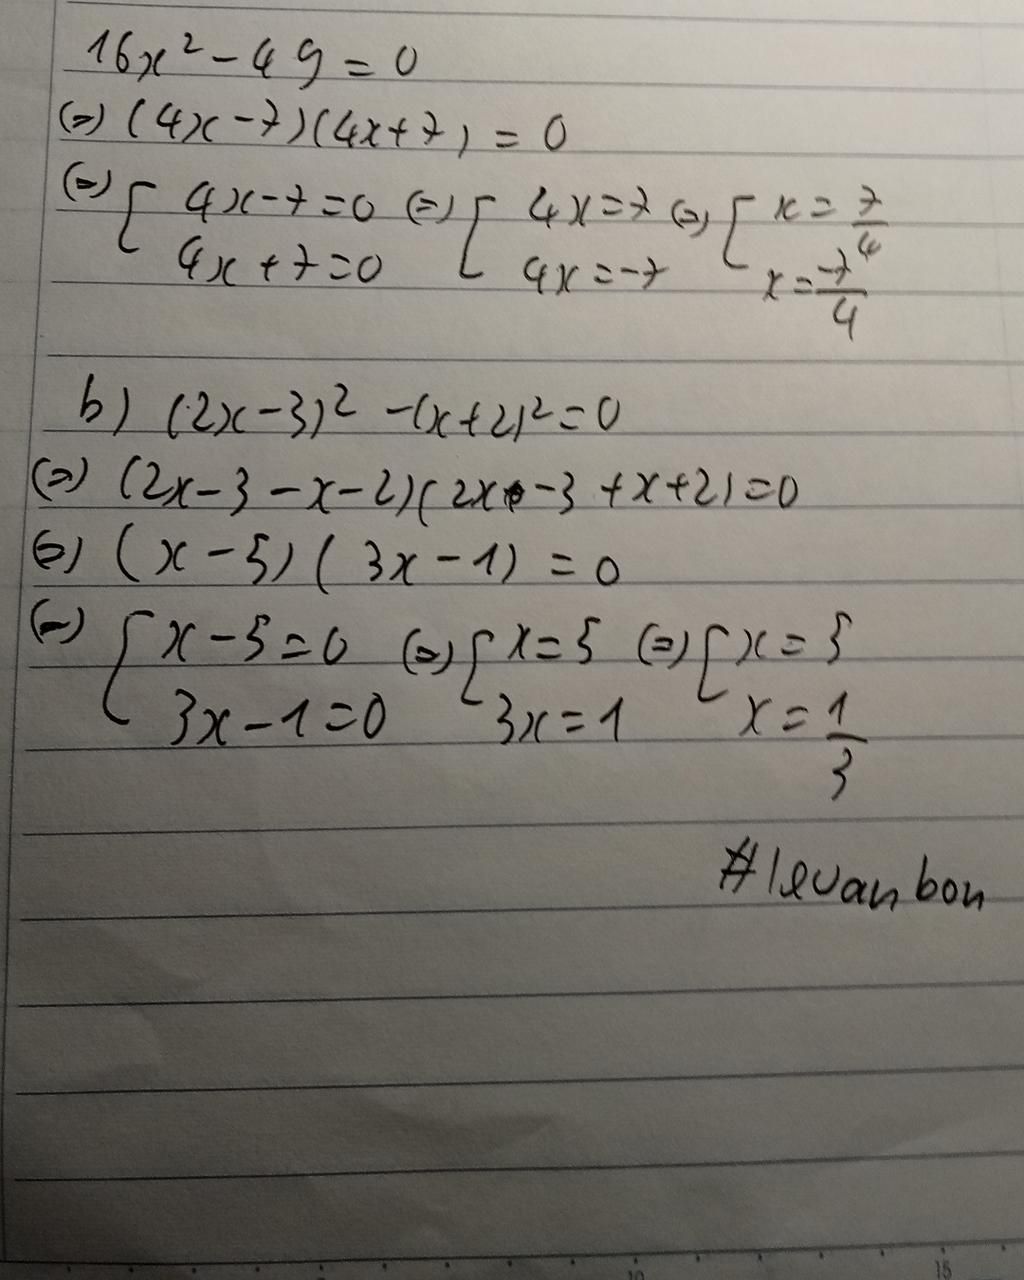 16x² - 49 = 0
(=) (4x - 7)(4x + 7) = 0
(=) [ 4x - 7 = 0 (=) [ 4x = 7 (=) [ x = 7/4
4x + 7 = 0 4x = -7 x = -7/4
b) (2x - 3)² - (x + 2)² = 0
(=) (2x - 3 - x - 2)(2x - 3 + x + 2) = 0
(=) (x - 5)(3x - 1) = 0
(=) [ x - 5 = 0 (=) [ x = 5 (=) [ x = 5
3x - 1 = 0 3x = 1 x = 1/3
#levanbon
10 15